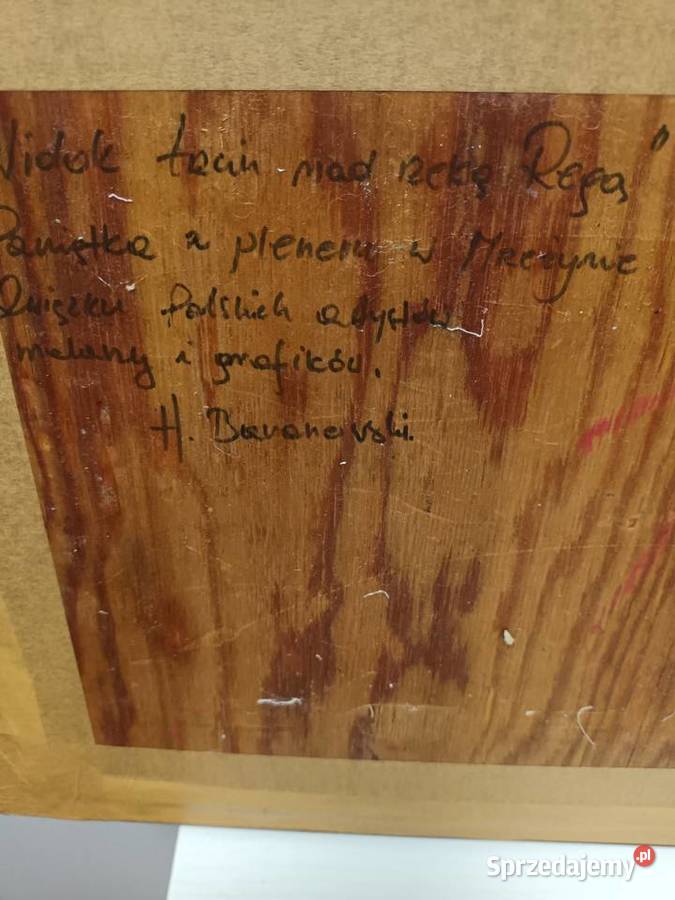 Widok łach nad rzeką Regą"
Pamiątka z pleneru w Mrzeżynie
Związku Polskich artystów
malarzy i grafików.
H. Baranowski.
Sprzedajemy.pl